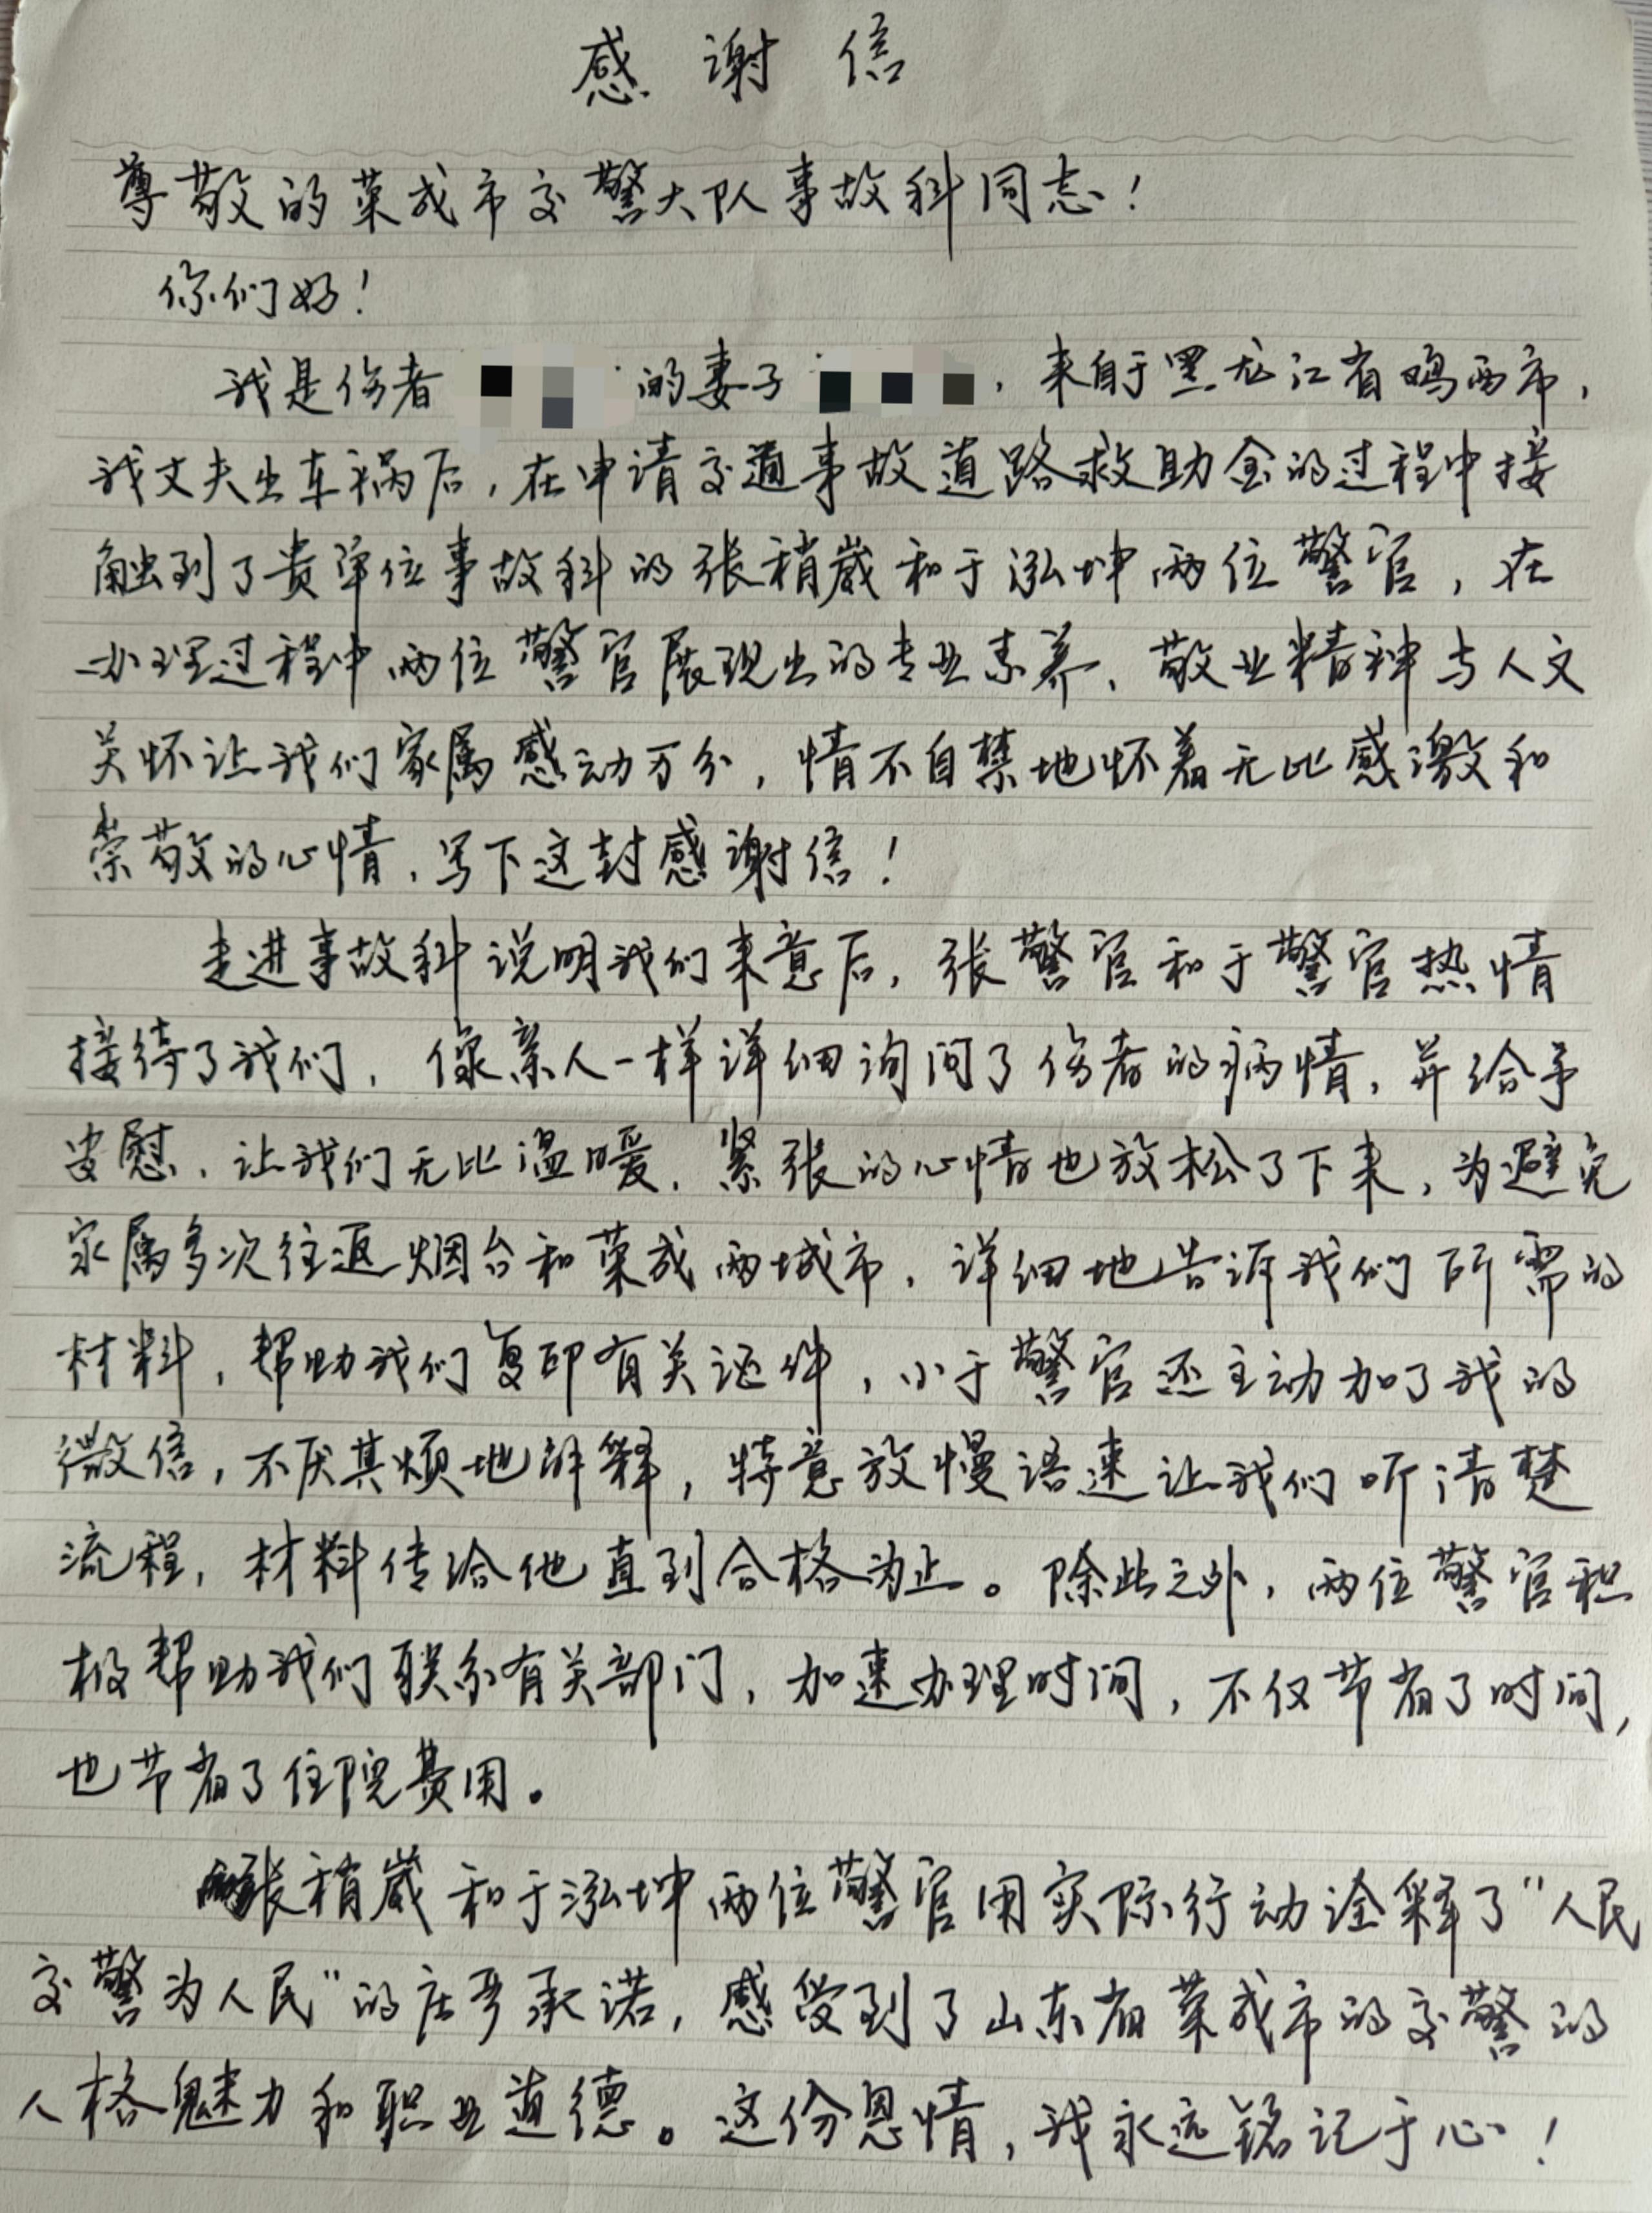 感谢信
尊敬的荣成市交警大队事故科同志！
你们好！
我是伤者 的妻子 ，来自于黑龙江省鸡西市，
我丈夫出车祸后，在申请交通事故道路救助金的过程中接
触到了贵单位事故科的张稍崴和于泓坤两位警官，在
办理过程中两位警官展现出的专业素养、敬业精神与人文
关怀让我们家属感动万分，情不自禁地怀着无比感激和
崇敬的心情，写下这封感谢信！
走进事故科说明我们来意后，张警官和于警官热情
接待了我们，像亲人一样详细询问了伤者的病情，并给予
安慰，让我们无比温暖，紧张的心情也放松了下来，为避免
家属多次往返烟台和荣成两城市，详细地告诉我们所需的
材料，帮助我们复印有关证件，小于警官还主动加了我的
微信，不厌其烦地解释，特意放慢语速让我们听清楚
流程，材料传给他直到合格为止。除此之外，两位警官积
极帮助我们联系有关部门，加速办理时间，不仅节省了时间，
也节省了住院费用。
张稍崴和于泓坤两位警官用实际行动诠释了“人民
交警为人民”的庄严承诺，感受到了山东省荣成市的交警的
人格魅力和职业道德。这份恩情，我永远铭记于心！